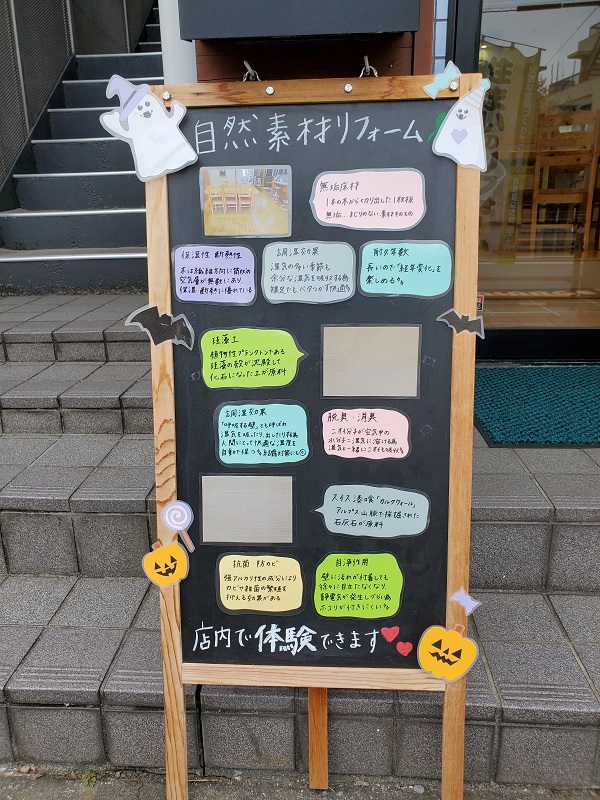 自然素材リフォーム
無垢床材
1本の木から切り出した1枚板
無垢…まじりのない素材そのもの
保湿性・断熱性
木は繊維方向に筒状の
空気層が無数にあり、
保湿・断熱に優れている
調湿効果
湿気の多い季節も
余分な湿気を吸収する為
裸足だとベタつかず快適
耐久年数
長いので「経年変化」を
楽しめる
珪藻土
植物性プランクトンである
珪藻の殻が沈殿して
化石になった土が原料
調湿効果
「呼吸する壁」とも呼ばれ
湿気を吸ったり、出したりする為
人間にとって快適な湿度を
自動で保つ 結露対策にも◎
脱臭・消臭
ニオイ分子が空気中の
水分子に溶ける為
湿気と一緒にニオイも吸収
スイス漆喰「カルクウォール」
アルプス山脈で採掘された
石灰石が原料
抗菌・防カビ
強アルカリ性の成分により
カビや雑菌の繁殖を
抑える効果がある
自浄作用
壁に汚れが付着しても
徐々に目立たなくなり、
静電気が発生しづらい為
ホコリが付きにくい
店内で体験できます